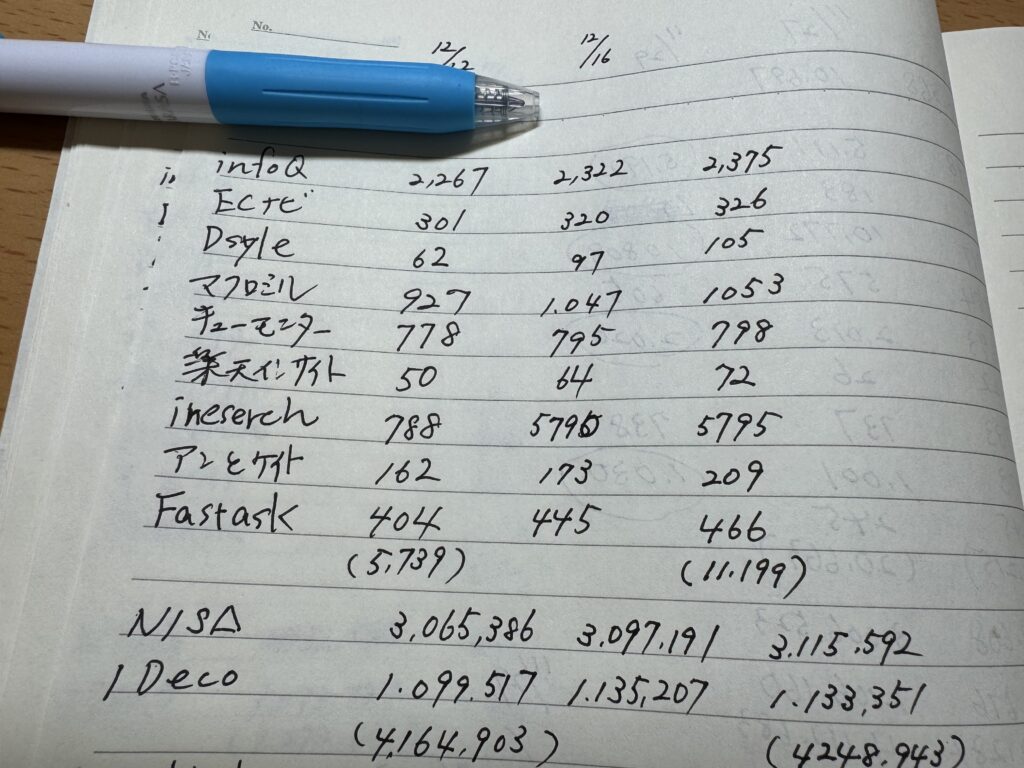 No.
12/12 12/16
infoQ 2,267 2,322 2,375
ECナビ 301 320 326
Dsyle 62 97 105
マクロミル 927 1.047 1053
キューモニター 778 795 798
楽天インサイト 50 64 72
ineserch 788 5795 5795
アンとケイト 162 173 209
Fastask 404 445 466
(5,739) (11.199)
NISA 3,065,386 3.097.191 3.115.592
I Deco 1.099.517 1.135,207 1.133,351
(4,164,903) (4248.943)